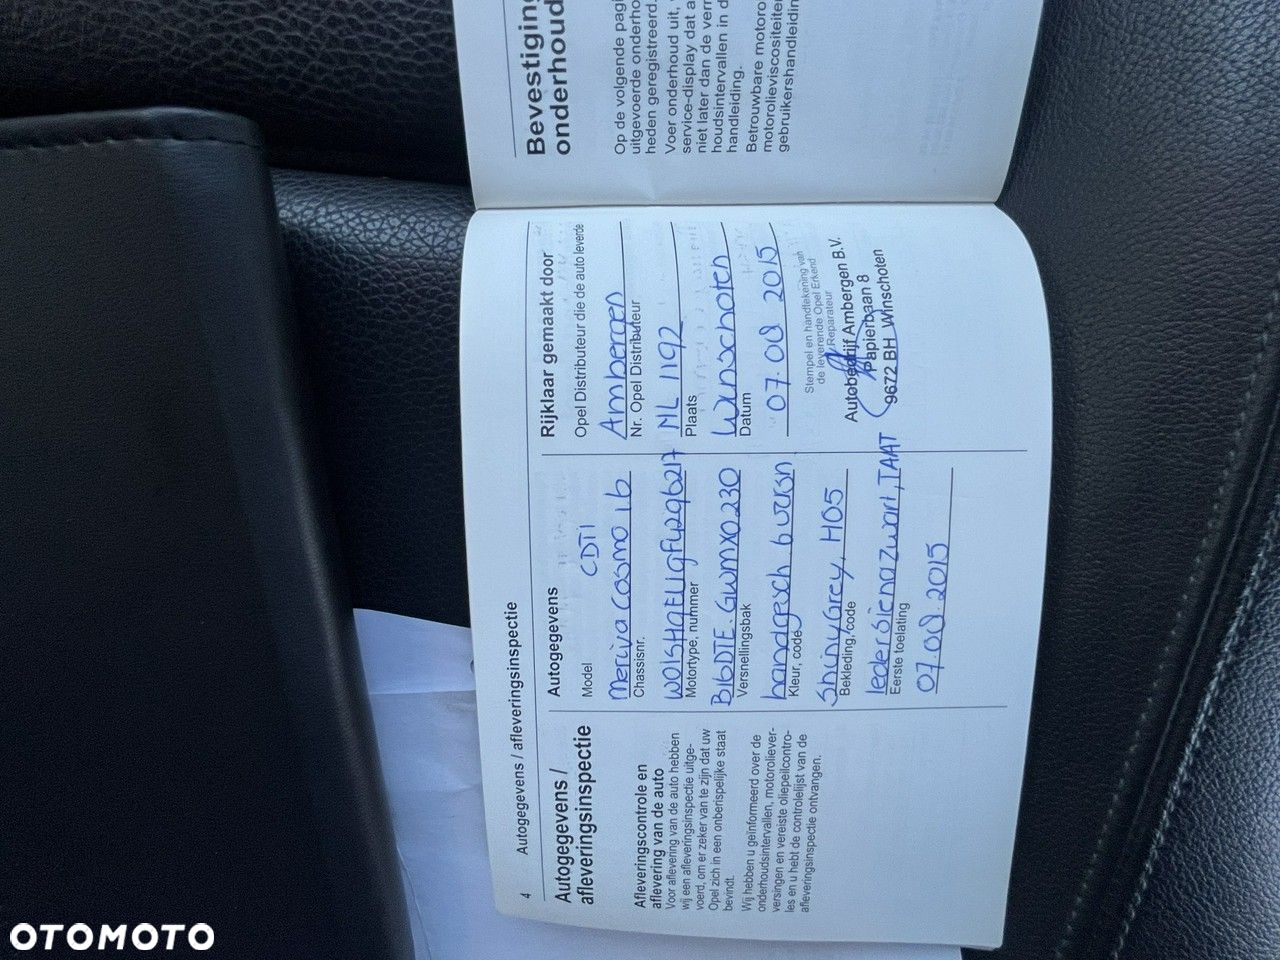 4
Autogegevens / afleveringsinspectie
Autogegevens /
afleveringsinspectie
Afleveringscontrole en
aflevering van de auto
Voor aflevering van de auto hebben
wij een afleveringsinspectie uitge-
voerd, om er zeker van te zijn dat uw
Opel zich in een onberispelijke staat
bevindt.
Wij hebben u geïnformeerd over de
onderhoudsintervallen, motoroliever-
versingen en vereiste oliepeilcontro-
les en u hebt de controlelijst van de
afleveringsinspectie ontvangen.
Autogegevens
Model
CDTI
Meriva Cosmo 1,6
Chassisnr.
Motortype, nummer
B16DTE.GWMX0230
Versnellingsbak
handgesch 6 versn
Kleur, code
Shiny Grey, H05
Bekleding, code
TAAT
Eerste toelating
07.08.2015
Rijklaar gemaakt door
Opel Distributeur die de auto leverde
Ambergen
Nr. Opel Distributeur
NL 1192
Plaats
Winschoten
Datum
07.08 2015
Stempel en handtekening van
de leverende Opel Erkend
Reparateur
Autobedrijf Ambergen B.V.
Papierbaan 8
9672 BH Winschoten
Bevestiging
onderhoud
Op de volgende pagi
uitgevoerde onderho
heden geregistreerd.
Voer onderhoud uit,
service-display dat a
niet later dan de verm
houdsintervallen in d
handleiding.
Betrouwbare motoro
motorolieviscositeiten
gebruikershandleiding
OTOMOTO